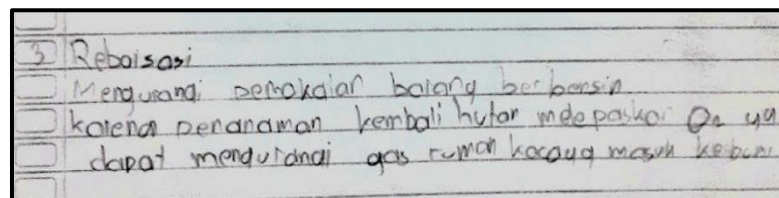 3 Reboisasi
Mengurangi pemakaian barang berbensin
karena penanaman kembali hutan melepaskan O₂ ya
dapat mengurangi gas rumah kacayg masuk kebumi